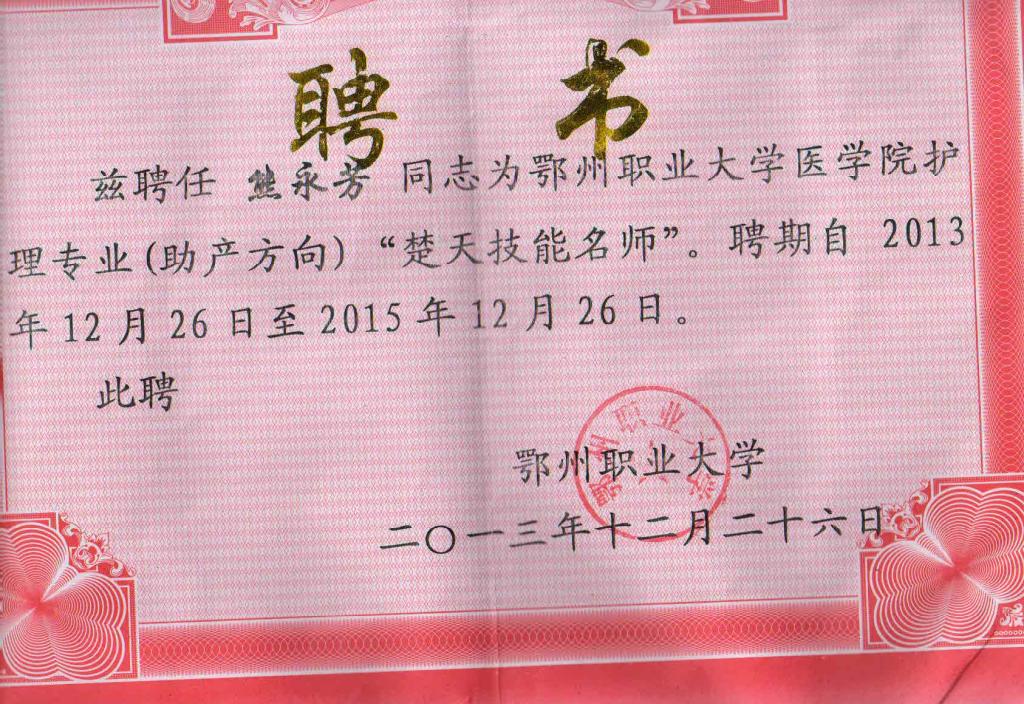 聘 书
兹聘任 熊永芳 同志为鄂州职业大学医学院护
理专业(助产方向)“楚天技能名师”。聘期自 2013
年 12 月 26 日至 2015 年 12 月 26 日。
此聘
鄂州职业大学
鄂州职业大学
二〇一三年十二月二十六日